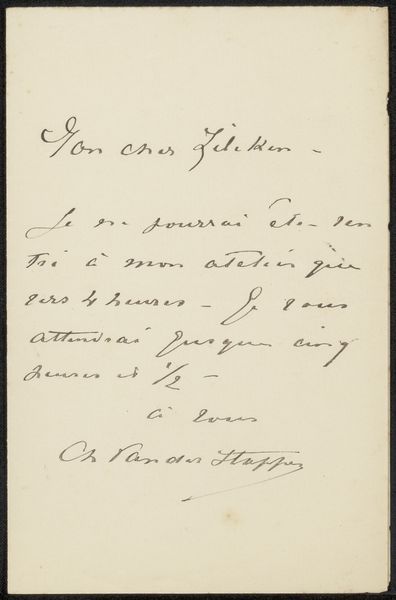 Mon cher Zilcken -
Je ne pourrai être ren
tré à mon atelier que
vers 4 heures - Je vous
attendrai jusque cinq
heures et 1/2 -
à vous
Ch Van der Stappen